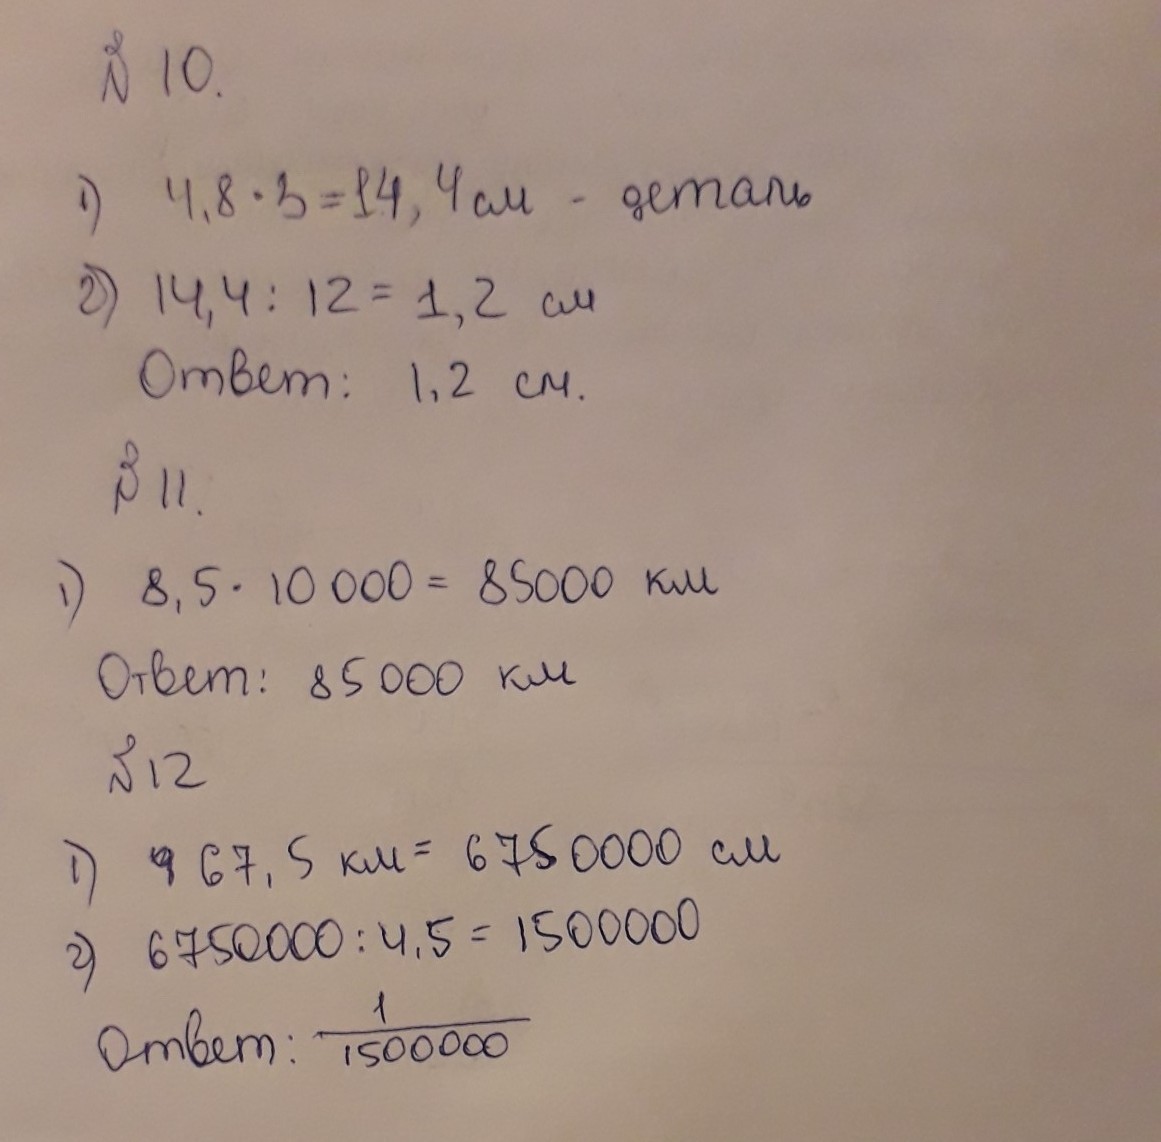 № 10.
1) 4,8 · 3 = 14,4 см - деталь
2) 14,4 : 12 = 1,2 см
Ответ: 1,2 см.
№ 11.
1) 8,5 · 10 000 = 85000 км
Ответ: 85 000 км
№ 12
1) 67,5 км = 6750000 см
2) 6750000 : 4,5 = 1500000
Ответ: 1/1500000